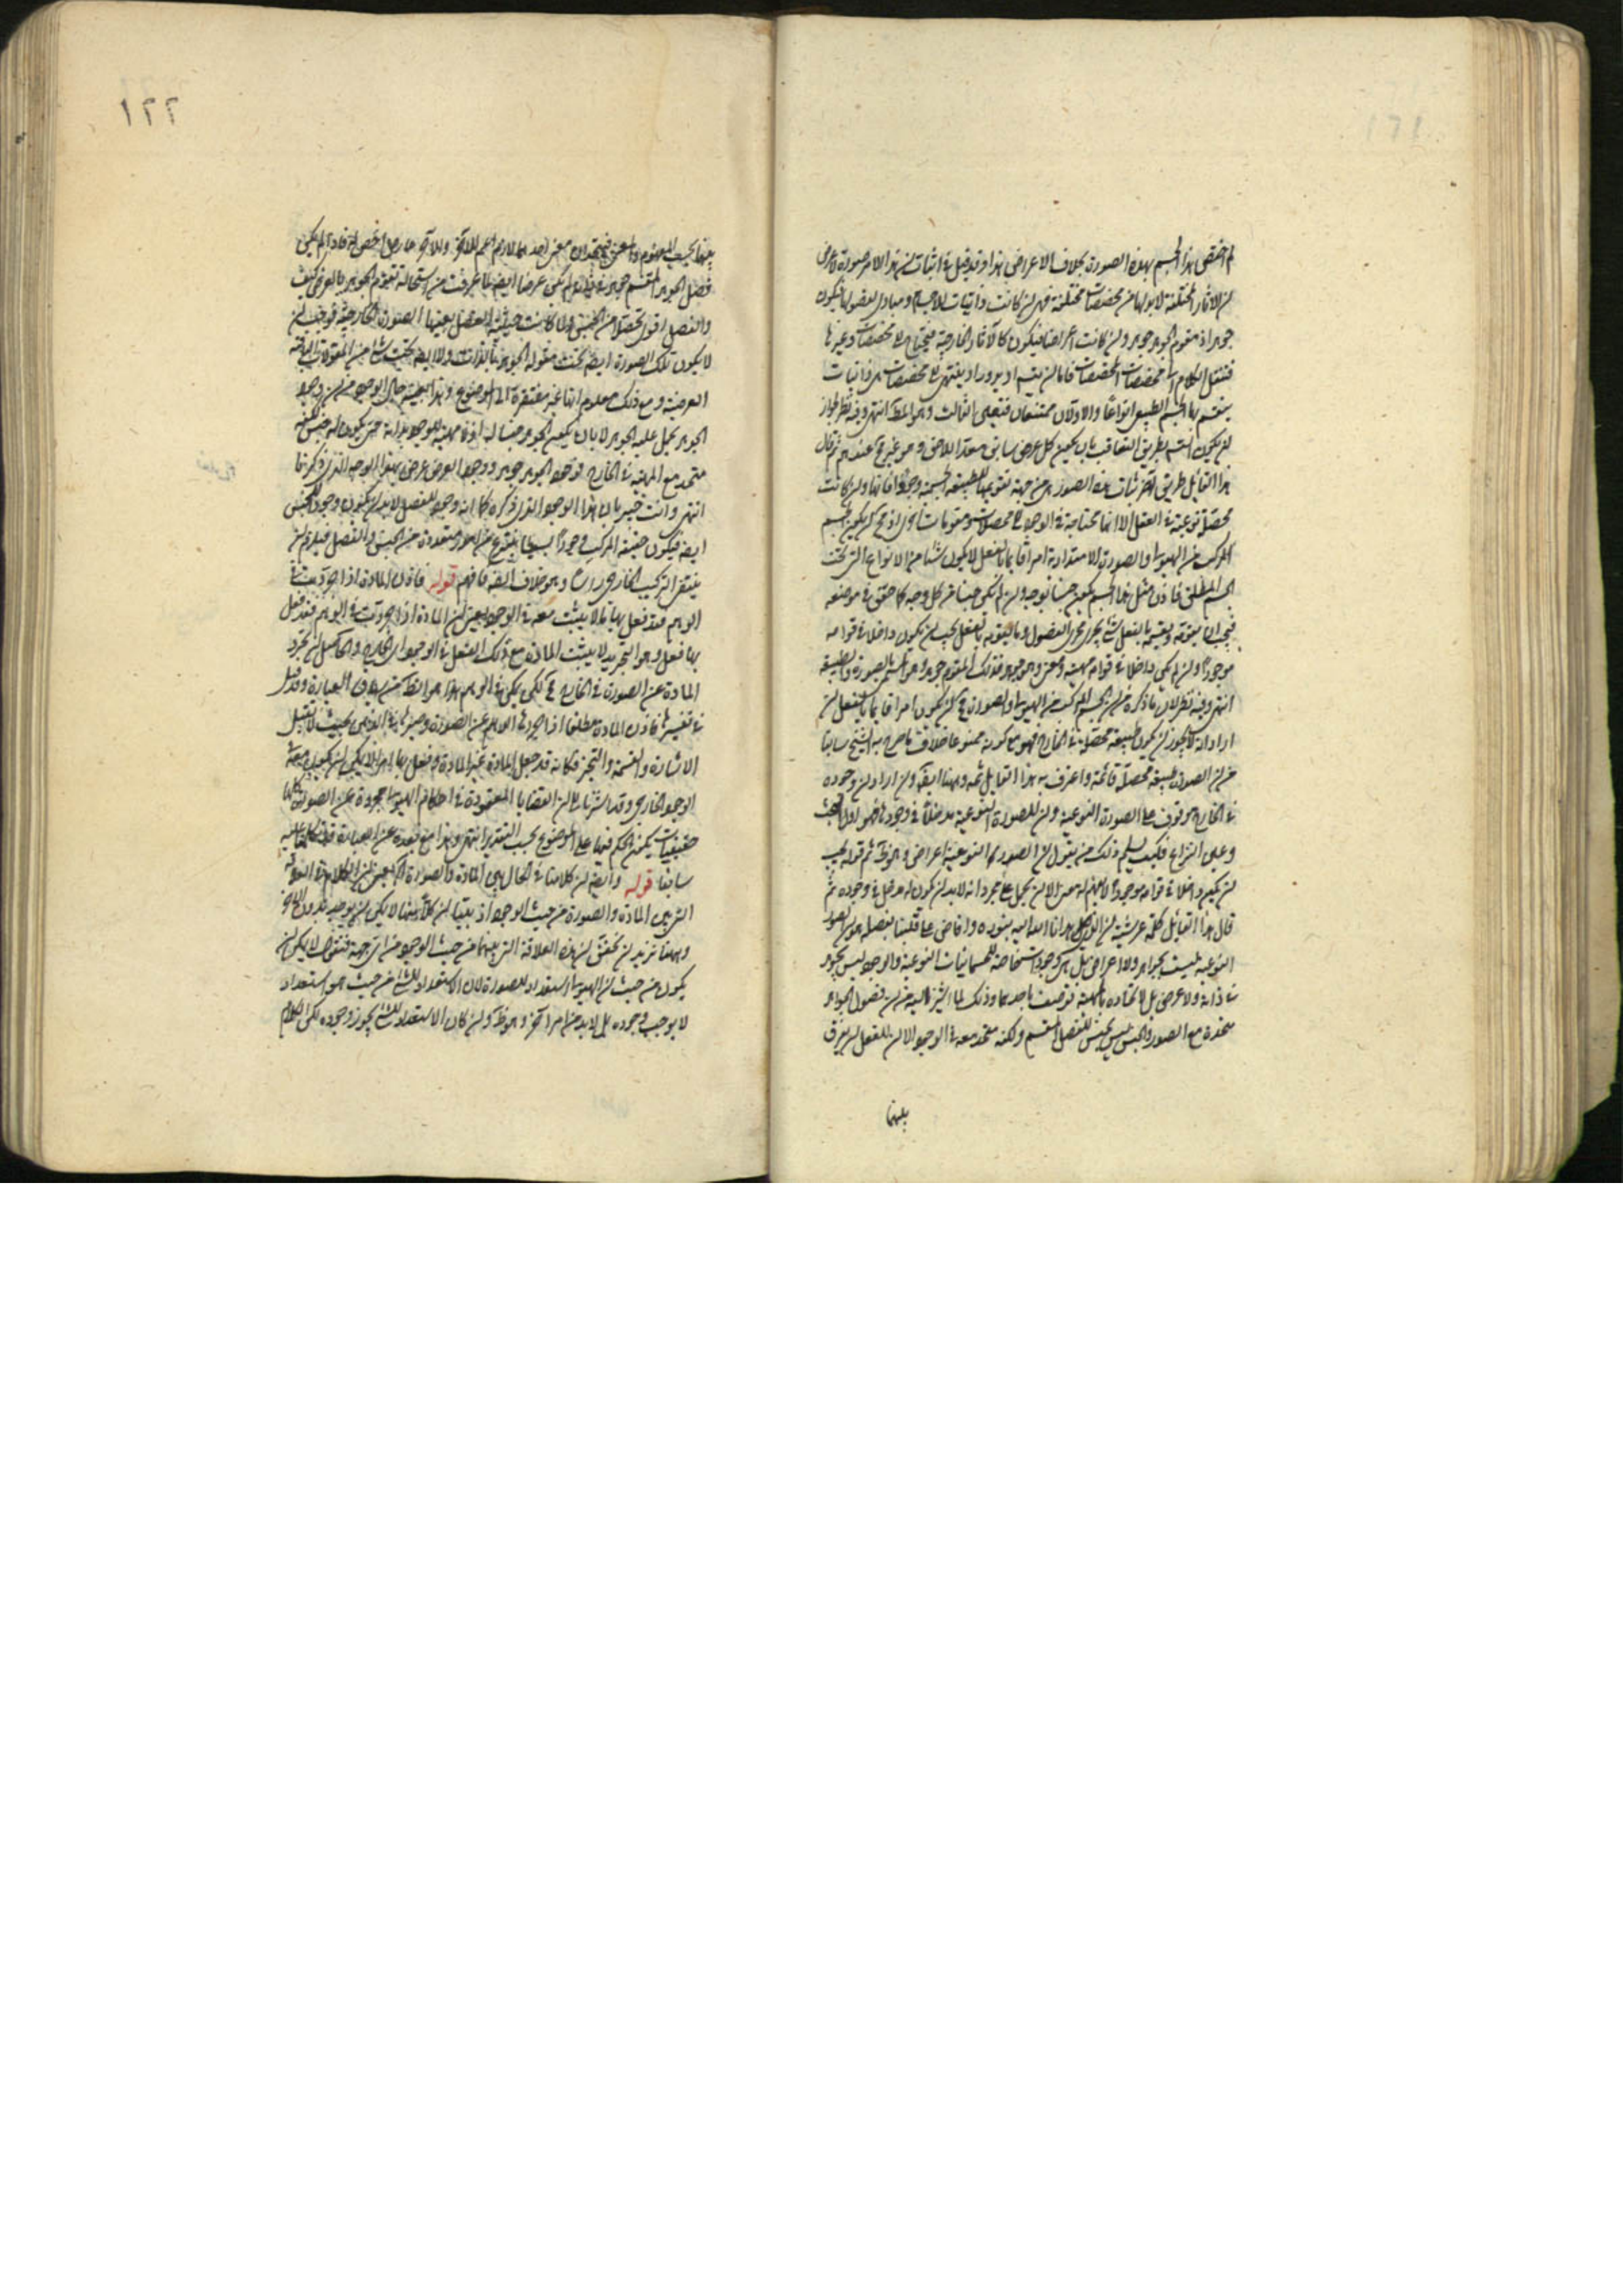 لم اختص هذا الجسم بهذه الصورة بخلاف الاعراض هذا وقد قيل في اثبات ان هذا الامر صورة لا عرض
ان الاثار المختلفة لا بد لها من مخصصات مختلفة فهي ان كانت ذاتيات للاجسام ومبادي لفصولها فيكون
جوهرا اذ مقوم الجوهر جوهر وان كانت اعراضا فيكون كالآثار الخارجية فيحتاج الى مخصصات وغيرها
فننقل الكلام الى مخصصات المخصصات فاما ان يتسلسل او يدور او ينتهي الى مخصصات هي ذاتيات
ينقسم بها الجسم الطبيعي انواعا والاولان ممتنعان فتعين الثالث وهو المط انتهى وفيه نظر لجواز
ان يكون التسلسل بطريق التعاقب بان يكون كل عرض سابق معدا للاحق وهو غير مح عندهم ثم قال
هذا القائل طريق آخر اثبات هذه الصور هي من جهة تقويمها للطبيعة الجسمية وجودا فانها وان كانت
محصلة نوعية في العقل الا انها محتاجة في الوجود الى محصلات ومقومات اخرى اذ مح ان يكون الجسم
المركب من الهيولى والصورة الامتدادية امرا قائما بالفعل لا يكون شيئا من الانواع التي تحت
الجسم المطلق فاذن مثل هذا الجسم يكون جنسا بوجه وان لم يكن جنسا من كل وجه كما حقق في موضعه
فيجب ان يقومه ويقيمه بالفعل شيء يجري مجرى الفصول وما يقومه بالفعل يجب ان يكون داخلا في قوامه
موجودا وان لم يكن داخلا في قوامه مهية ومعنى وهو جوهر فذلك المقوم جوهر وهو المسمى بالصورة والطبيعة
انتهى وفيه نظر لان ما ذكره من ان الجسم المركب من الهيولى والصورة مح ان يكون امرا قائما بالفعل ان
اراد انه لا يجوز ان يكون طبيعة محصلة في الخارج فهو مع كونه ممنوعا خلاف ما صرح به الشيخ سابقا
من ان الصورة طبيعة محصلة قائمة واعترف به هذا القائل ثمة وههنا ايضا وان اراد ان وجوده
في الخارج موقوف على الصورة النوعية وان للصورة النوعية مدخلا في وجودها فهو اول البحث
وعين النزاع فكيف يسلم ذلك من يقول ان الصور النوعية اعراض وهو ظ ثم قوله يجب
ان يكون داخلا في قوامه موجودا لا يفهم له معنى الا ان يحمل على مجرد انه لا بد ان يكون له مدخل في وجوده ثم
قال هذا القائل حكمة عرشية ان الذي هدانا الله اليه بنوره وافاض على قلبنا بفضله هو ان الصور
النوعية ليست بجواهر ولا اعراض بل هي وجودات خاصة للجسمانيات النوعية والوجود ليس بجوهر
في ذاته ولا عرض بل لاتحاده بالمهية توصف باحدهما وذلك لما اشرنا اليه من ان فصول الجواهر
متحدة مع الصور والجنس ليس بجنس للفصل المقسم ولكنه متحد معه في الوجود الا ان للعقل ان يفرق
بينهما
١٢٢
بينهما بحسب المفهوم والمعنى فيجدان معنى احدهما لازم اعم للآخر والآخر عارض اخص له فاذا لم يكن
فصل الجوهر المقسم جوهرا في ذاته ولم يكن عرضا ايضا لما عرفت من استحالة تقوم الجوهر بالعرض كيف
والفصل اقوى تحصلا من الجنس ولما كانت حيثية الفصل بعينها الصورة الخارجية فوجب ان
لا يكون تلك الصورة ايضا تحت مقولة الجوهر بالذات ولا ايضا تحت شيء من المقولات الباقية
العرضية ومع ذلك معلوم انها غير مفتقرة الى الموضوع وهذا بعينه حال الوجود من ان وجود
الجوهر يحمل عليه الجوهر لا بان يكون الجوهر جنسا له اذ لا مهية للوجود بذاته حتى يكون له جنس لكنه
متحد مع المهية في الخارج فوجود الجوهر جوهر ووجود العرض عرض بهذا الوجه الذي ذكرنا
انتهى وانت خبير بان هذا الوجه الذي ذكره كما انه وجود للفصل لا بد ان يكون وجود الجنس
ايضا فيكون حقيقة المركب وجودا بسيطا ينتزع منه امور متعددة من الجنس والفصل فيلزم ان
ينتفي التركيب الخارجي راسا وهو خلاف الفرض فافهم قوله فاذن المادة اذا جردت في
الوهم فقد فعل بها ما لا يثبت معه في الوجود يعني ان المادة اذا جردت في الوهم فقد فعل
بها فعل وهو التجريد لا يثبت المادة مع ذلك الفعل في الوجود اي الخارج والحاصل ان تجرد
المادة عن الصورة في الخارج مح لكن يمكن في الوهم هذا هو الظ من سياق العبارة وقد قيل
في تفسيرها فاذن المادة مطلقا اذا جردها الوهم عن الصورة وصيرها في الذهن بحيث لا تقبل
الاشارة والقسمة والتحيز فكانه قد جعل المادة غير المادة وفعل بها امرا لا يمكن ان يكون معه
الوجود الخارجي وقد اشرنا الى ان القضايا المعقودة في احكام الهيولى مجردة عن الصورة كلها
حقيقيات يكون الحكم فيها على الموضوع بحسب التقدير انتهى وهذا مع بعده عن العبارة قد
سابقا قوله وايضا ان كلامنا في الحال بين المادة والصورة
التي بين المادة والصورة من حيث الوجود اذ بينا ان كلا منهما لا يمكن ان يوجد بدون الآخر
وههنا نريد ان نحقق ان هذه العلاقة التي بينهما من حيث الوجود من اي جهة فنقول لا يمكن ان
يكون من حيث ان الهيولى استعداد للصورة لان الاستعداد للشيء من حيث هو استعداد
لا يوجب وجوده بل لا بد من امر آخر وهو ظ وان كان الاستعداد للشيء يجوز وجوده لكن الكلام